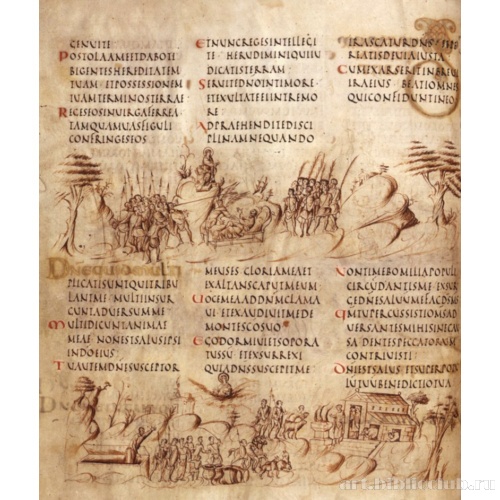 GENUITE
POSTOLAAMEETDABOTI
BIGENTESHEREDITATEM
TUAM ETPOSSESSIONEM
TUAMTERMINOSTERRAE
REGESEOSINUIRGAFERREA
TAMQUAMUASFIGULI
CONFRINGESEOS
ETNUNCREGESINTELLEGI
TE ERUDIMINIQUIIU
DICATISTERRAM
SERUITEDNOINTIMORE
ETEXULTATEEIINTREMO
RE
ADPRAEHENDITEDISCI
PLINAMNEQUANDO
IRASCATURDNS ETPE
REATISDEUIAIUSTA
CUMEXARSERITINBREUI
IRAEIUS BEATIOMNES
QUICONFIDUNTINEO
DNEQUIDMULTI
PLICATISUNTQUITRIBU
LANTME MULTIINSUR
GUNTADUERSUMME
MULTIDICUNTANIMAE
MEAE NONESTSALUSIPSI
INDOEIUS
TUAUTEMDNESUSCEPTOR
MEUSES GLORIAMEAET
EXALTANSCAPUTMEUM
UOCEMEAADDNMCLAMA
UI ETEXAUDIUITMEDE
MONTESCOSUO
EGODORMIUIETSOPORA
TUSSU ETEXSURREXI
QUIADNSSUSCEPITME
NONTIMEBOMILIAPOPULI
CIRCUDANTISME EXSUR
GEDNESALUUMMEFACDSMS
QMTUPERCUSSISTIOMNSAD
UERSANTESMIHISINECAU
SA DENTESPECCATORUM
CONTRIUISTI
DNIESTSALUS ETSUPERPO
PULUTUUBENEDICTIOTUA
art.biblioclub.ru